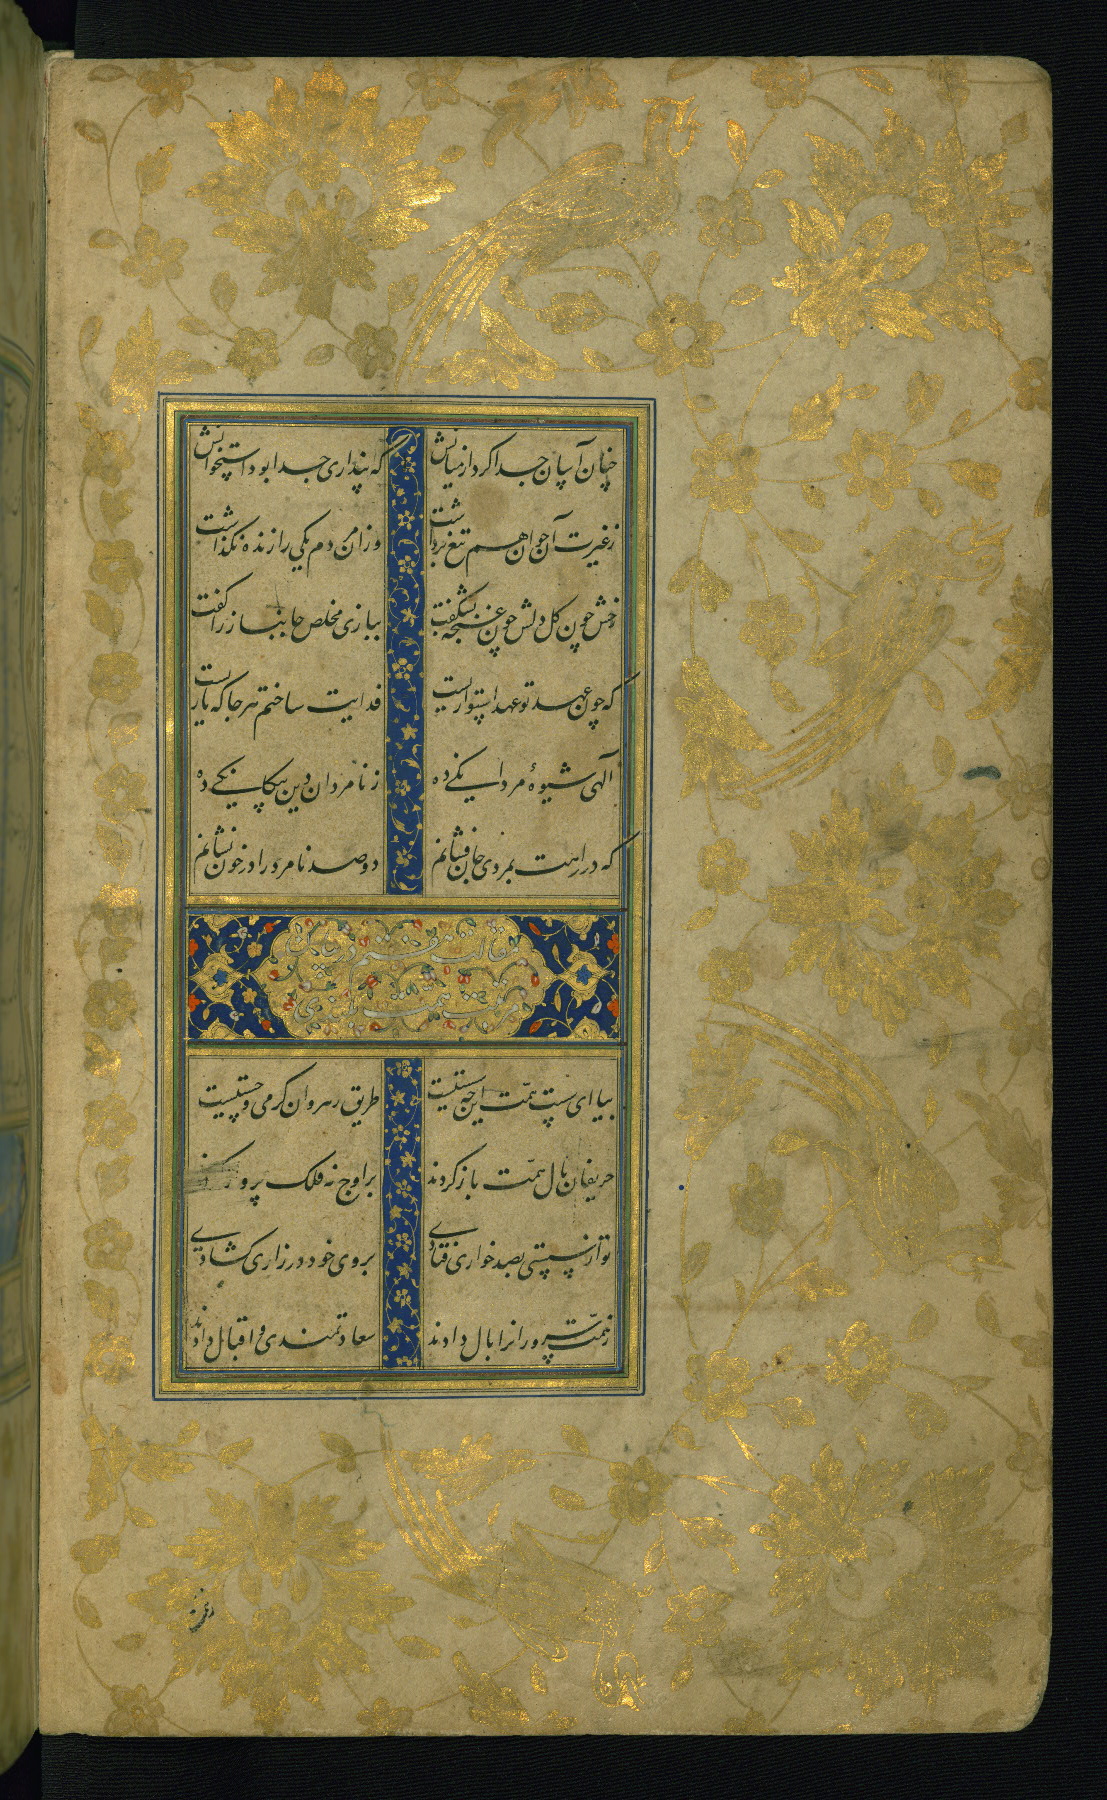 چنان آسان جدا کرد از میانش که پنداری جدا بود استخوانش
ز غیرت آن جوان هم تیغ برداشت وزان مردم یکی را زنده نگذاشت
رخش چون گل دلش چون غنچه بشکفت ببازی مخلص جانباز را گفت
که چون عهد تو عهد استوارست فدایت ساختم هر جا که یارست
الهی شیوهٔ مردانگی ده ز نامردان دین بیگانگی ده
که در راهت بمردی جان فشانم دو صد نامرد را در خون نشانم
مقالت هفتم در بیان
همت بلندی
بیا ای سست همت این چه سستیست طریق رهروان گرمی و چستیست
حریفان بال همت باز کردند بر اوج نه فلک پرواز کردند
تو از پستی بصد خواری فتادی بروی خود در زاری گشادی
ز همت سرورانرا بال دادند سعادتمندی و اقبال دادند